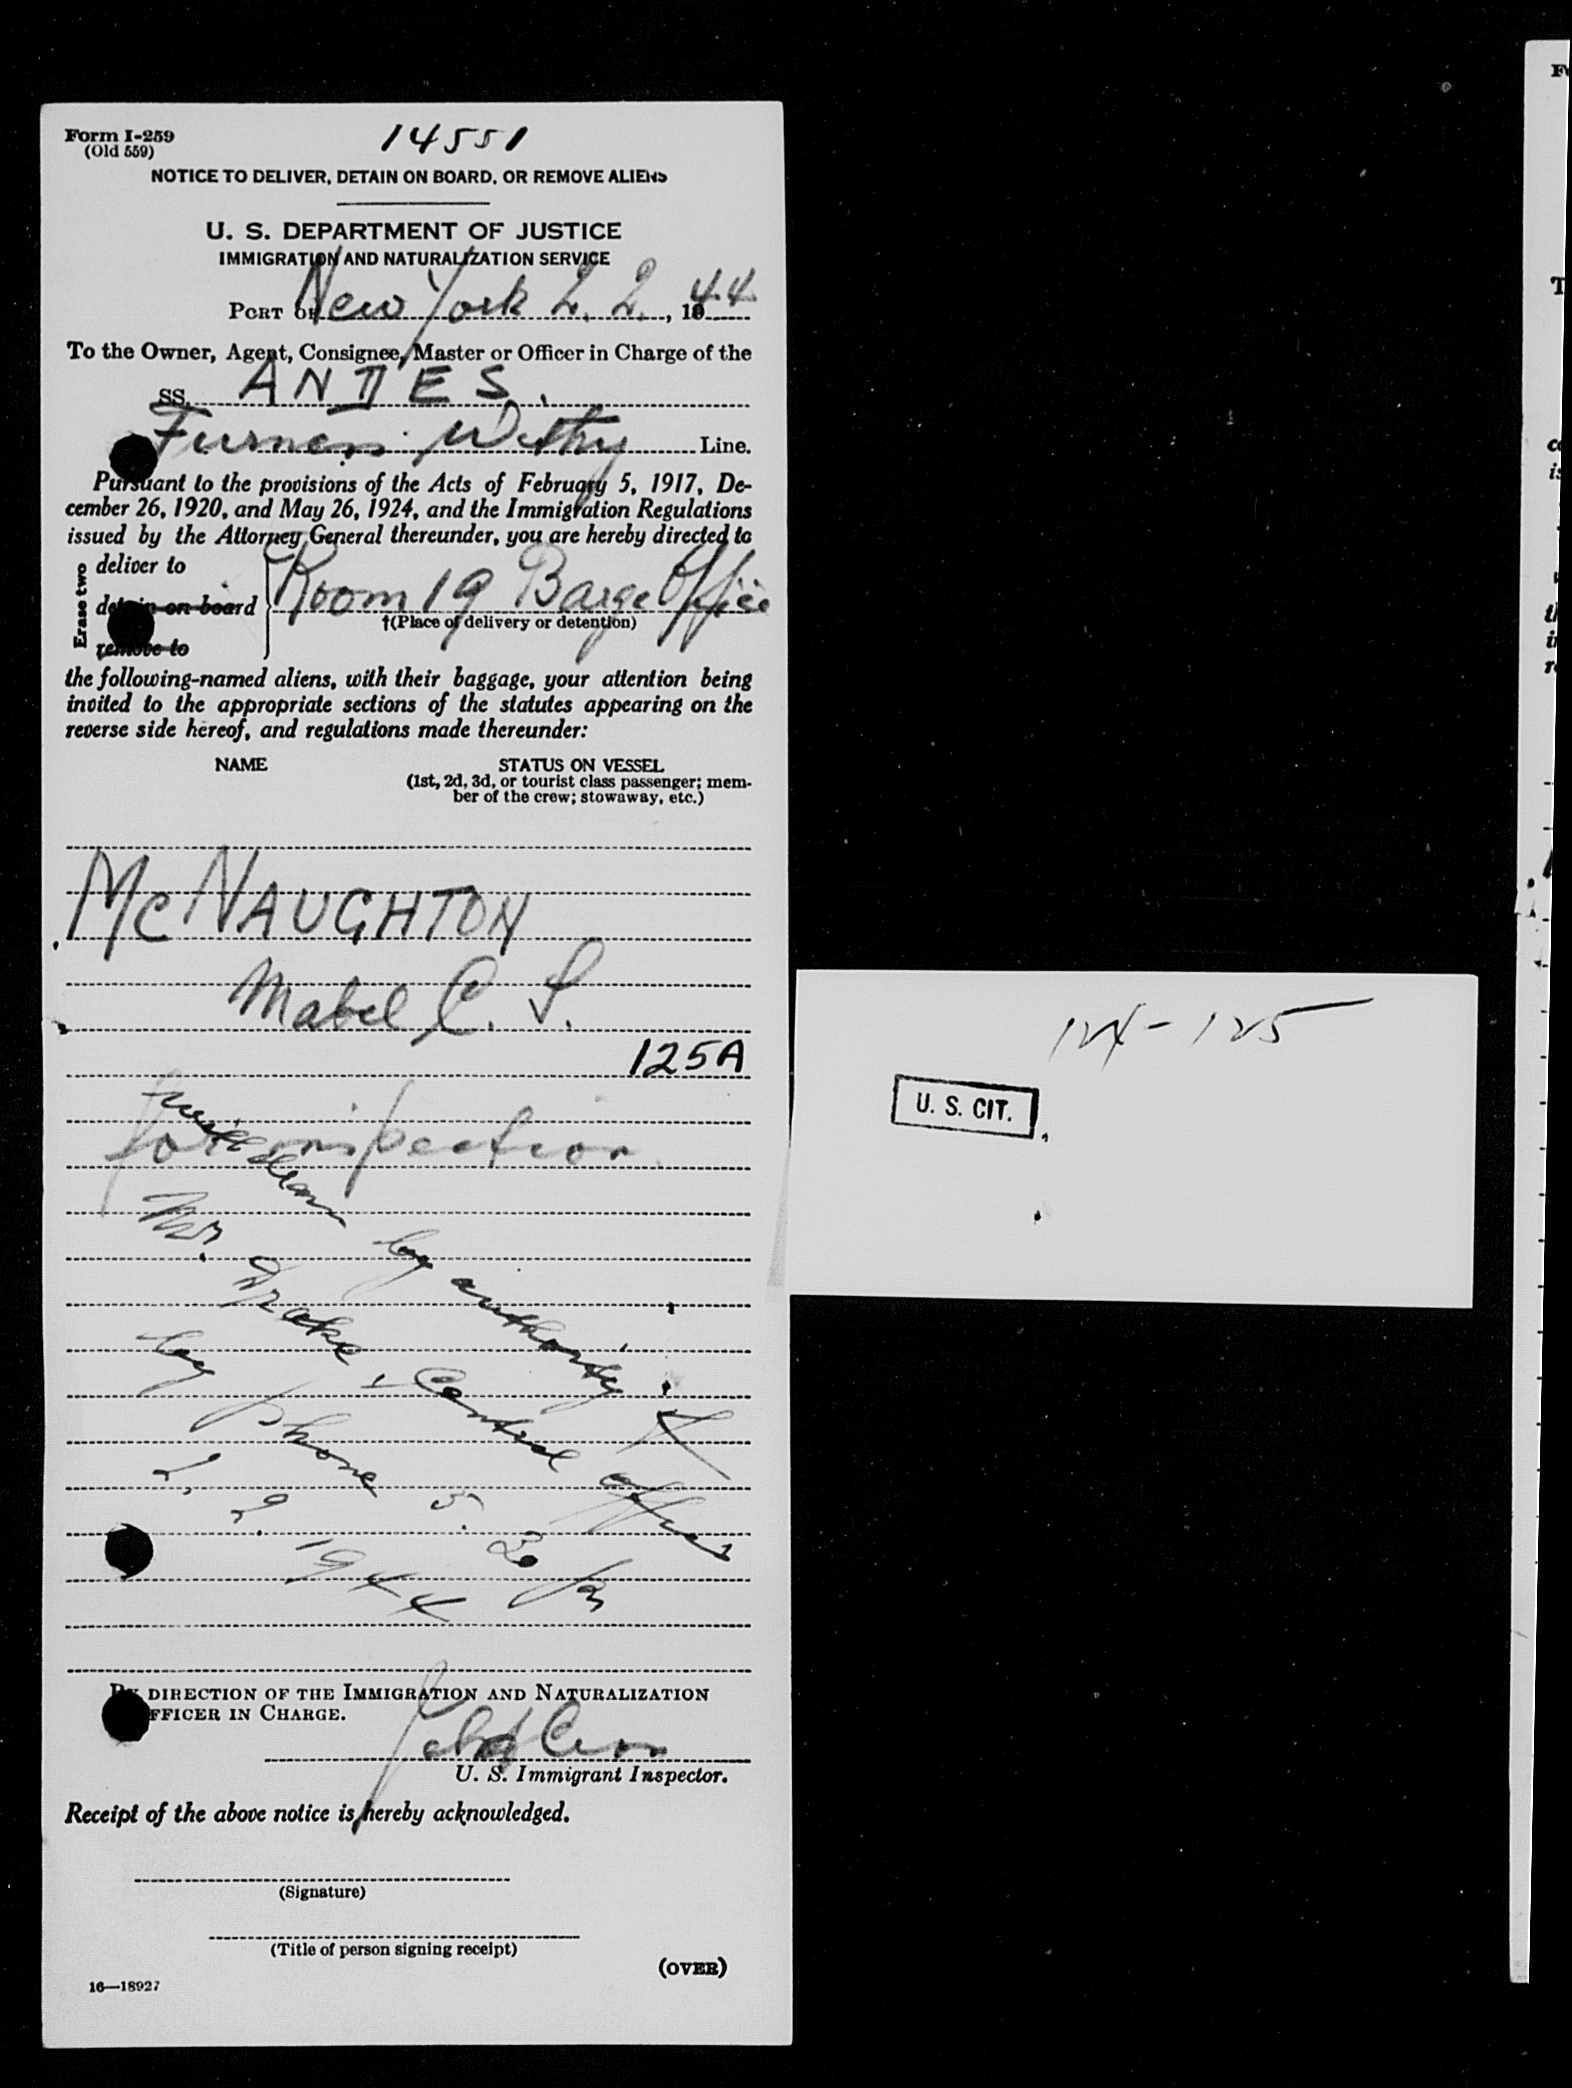 Form I-259
(Old 559)
14551
NOTICE TO DELIVER, DETAIN ON BOARD, OR REMOVE ALIENS
U. S. DEPARTMENT OF JUSTICE
IMMIGRATION AND NATURALIZATION SERVICE
PORT OF New York 2. 2. , 1944
To the Owner, Agent, Consignee, Master or Officer in Charge of the
SS. ANDES.
Furness Withy Line.
Pursuant to the provisions of the Acts of February 5, 1917, De-
cember 26, 1920, and May 26, 1924, and the Immigration Regulations
issued by the Attorney General thereunder, you are hereby directed to
Erase two
deliver to
detain on board
remove to
Room 19 Barge Office
†(Place of delivery or detention)
the following-named aliens, with their baggage, your attention being
invited to the appropriate sections of the statutes appearing on the
reverse side hereof, and regulations made thereunder:
NAME
STATUS ON VESSEL
(1st, 2d, 3d, or tourist class passenger; mem-
ber of the crew; stowaway, etc.)
McNAUGHTON
Mabel C. S.
125A
for inspection
by authority of
Mr. Drake, Central Office
by phone 5.30 p
2. 2. 1944
BY DIRECTION OF THE IMMIGRATION AND NATURALIZATION
OFFICER IN CHARGE.
U. S. Immigrant Inspector.
Receipt of the above notice is hereby acknowledged.
(Signature)
(Title of person signing receipt)
(OVER)
16—18927
124-125
U. S. CIT.